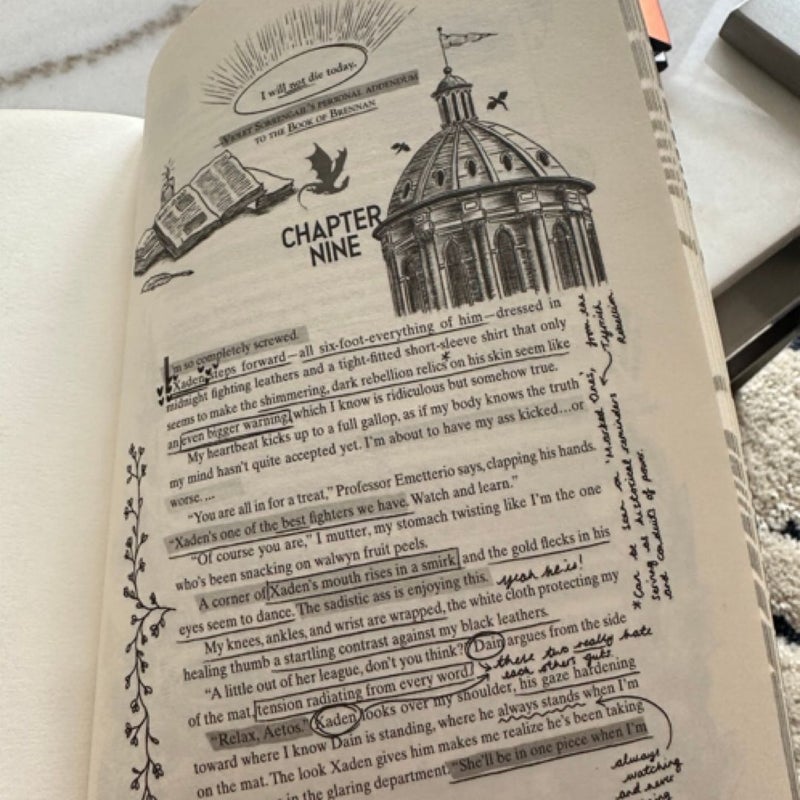 I will not die today.
VIOLET SORRENGAIL'S PERSONAL ADDENDUM
TO THE BOOK OF BRENNAN
CHAPTER
NINE
I'm so completely screwed.
Xaden steps forward—all six-foot-everything of him—dressed in
midnight fighting leathers and a tight-fitted short-sleeve shirt that only
seems to make the shimmering, dark rebellion relics* on his skin seem like
an even bigger warning, which I know is ridiculous but somehow true.
My heartbeat kicks up to a full gallop, as if my body knows the truth
my mind hasn't quite accepted yet. I'm about to have my ass kicked…or
worse. …
"You are all in for a treat," Professor Emetterio says, clapping his hands.
"Xaden's one of the best fighters we have. Watch and learn."
"Of course you are," I mutter, my stomach twisting like I'm the one
who's been snacking on walwyn fruit peels.
A corner of Xaden's mouth rises in a smirk, and the gold flecks in his
eyes seem to dance. The sadistic ass is enjoying this. yeah he is!
My knees, ankles, and wrist are wrapped, the white cloth protecting my
healing thumb a startling contrast against my black leathers.
"A little out of her league, don't you think?" Dain argues from the side
of the mat, tension radiating from every word.
these two really hate
each others guts.
"Relax, Aetos." Xaden looks over my shoulder, his gaze hardening
toward where I know Dain is standing, where he always stands when I'm
on the mat. The look Xaden gives him makes me realize he's been taking
in the glaring department. "She'll be in one piece when I'm
*Can be seen on 'Marked Ones,' from the
Tyrrish
Rebellion
serving as historical reminders
and conduits of power.
always
watching
and never